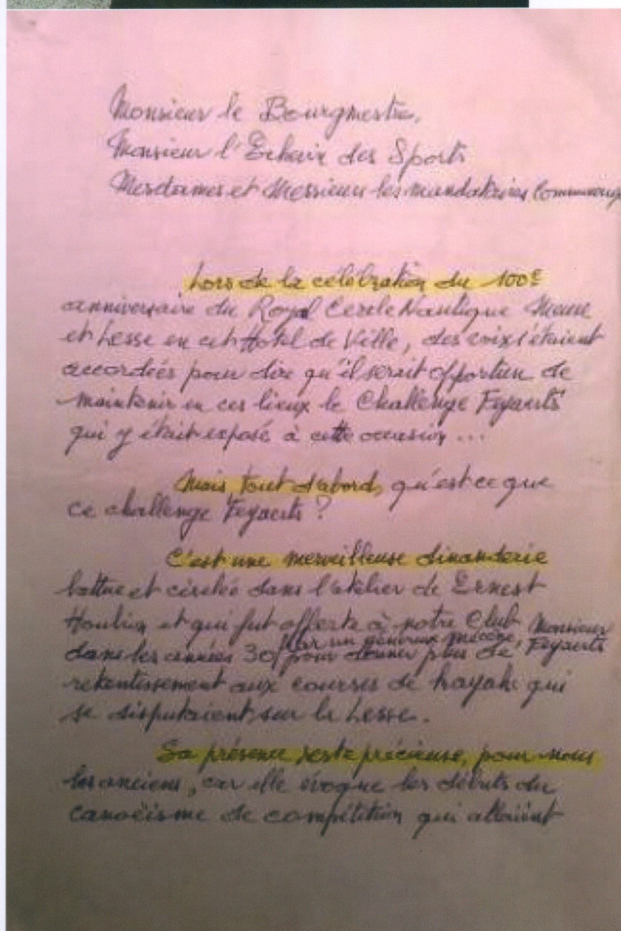 Monsieur le Bourgmestre,
Monsieur l'Echevin des Sports
Mesdames et Messieurs les mandataires
Lors de la célébration du 100e
anniversaire du Royal Cercle Nautique Meuse
et Lesse en cet Hôtel de Ville, des voix s'étaient
accordées pour dire qu'il serait opportun de
maintenir en ces lieux le Challenge Feyaerts
qui y était exposé à cette occasion...
Mais tout d'abord, qu'est ce que
ce challenge Feyaerts ?
C'est une merveilleuse dinanderie
battue et ciselée dans l'atelier de Ernest
et qui fut offerte à notre Club
par un généreux mécène, Monsieur Feyaerts
dans les années 30 pour donner plus de
retentissement aux courses de kayak qui
se disputaient sur la Lesse.
Sa présence reste précieuse, pour nous
les anciens, car elle évoque les débuts du
canoëisme de compétition qui allaient